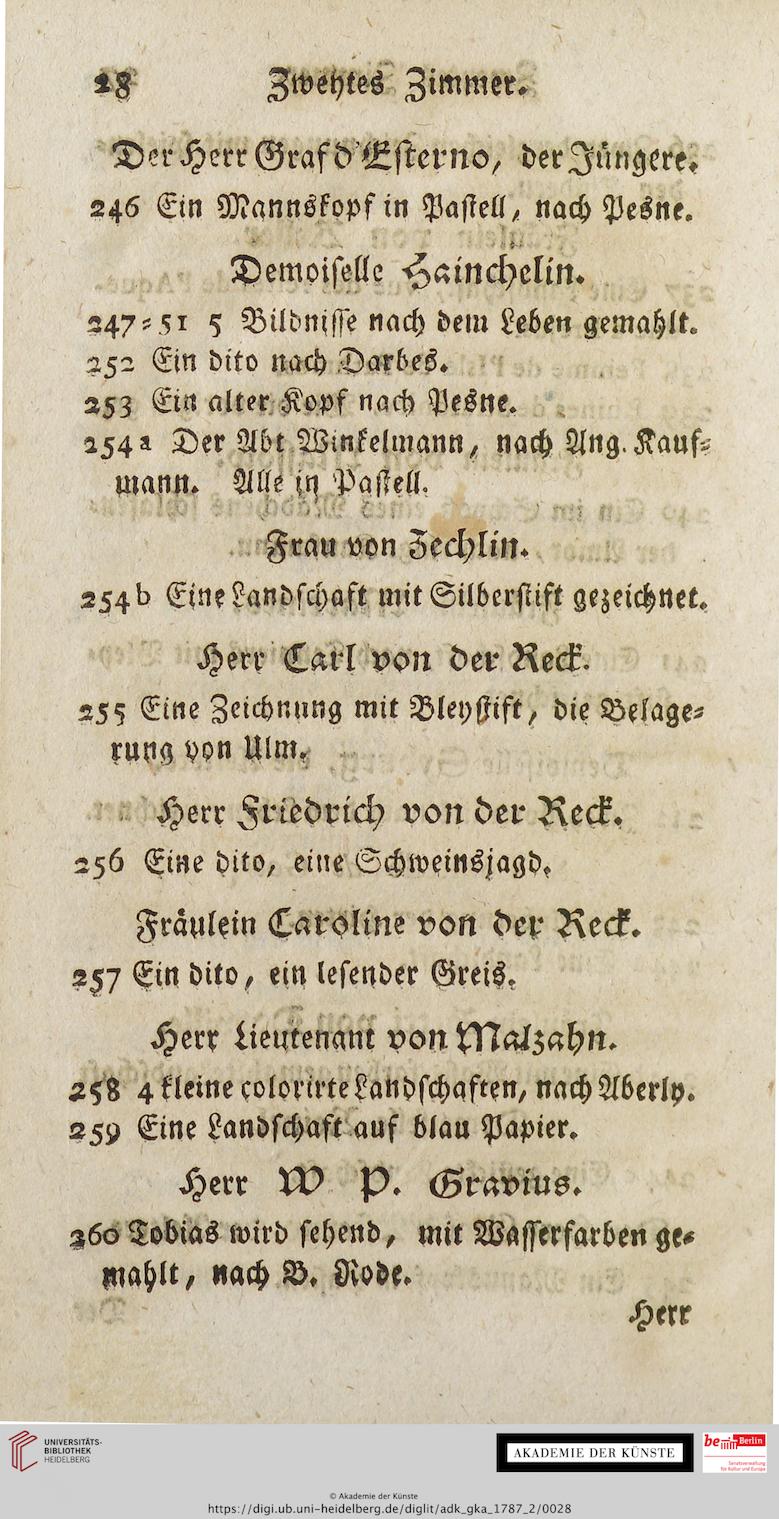 28 Zweytes Zimmer.
Der Herr Graf d'Esterno, der Jüngere.
246 Ein Mannskopf in Pastell, nach Pesne.
Demoiselle Hainchelin.
247=51 5 Bildnisse nach dem Leben gemahlt.
252 Ein dito nach Darbes.
253 Ein alter Kopf nach Pesne.
254a Der Abt Winkelmann, nach Ang. Kauf=
mann. Alle in Pastell.
Frau von Zechlin.
254b Eine Landschaft mit Silberstift gezeichnet.
Herr Carl von der Reck.
255 Eine Zeichnung mit Bleystift, die Belage=
rung von Ulm.
Herr Friedrich von der Reck.
256 Eine dito, eine Schweinsjagd.
Fräulein Caroline von der Reck.
257 Ein dito, ein lesender Greis.
Herr Lieutenant von Malzahn.
258 4 kleine colorirte Landschaften, nach Aberly.
259 Eine Landschaft auf blau Papier.
Herr W P. Gravius.
260 Tobias wird sehend, mit Wasserfarben ge=
mahlt, nach B. Rode.
Herr
UNIVERSITÄTS-
BIBLIOTHEK
HEIDELBERG
AKADEMIE DER KÜNSTE
be Berlin
Senatsverwaltung
für Kultur und Europa
© Akademie der Künste
https://digi.ub.uni-heidelberg.de/diglit/adk_gka_1787_2/0028